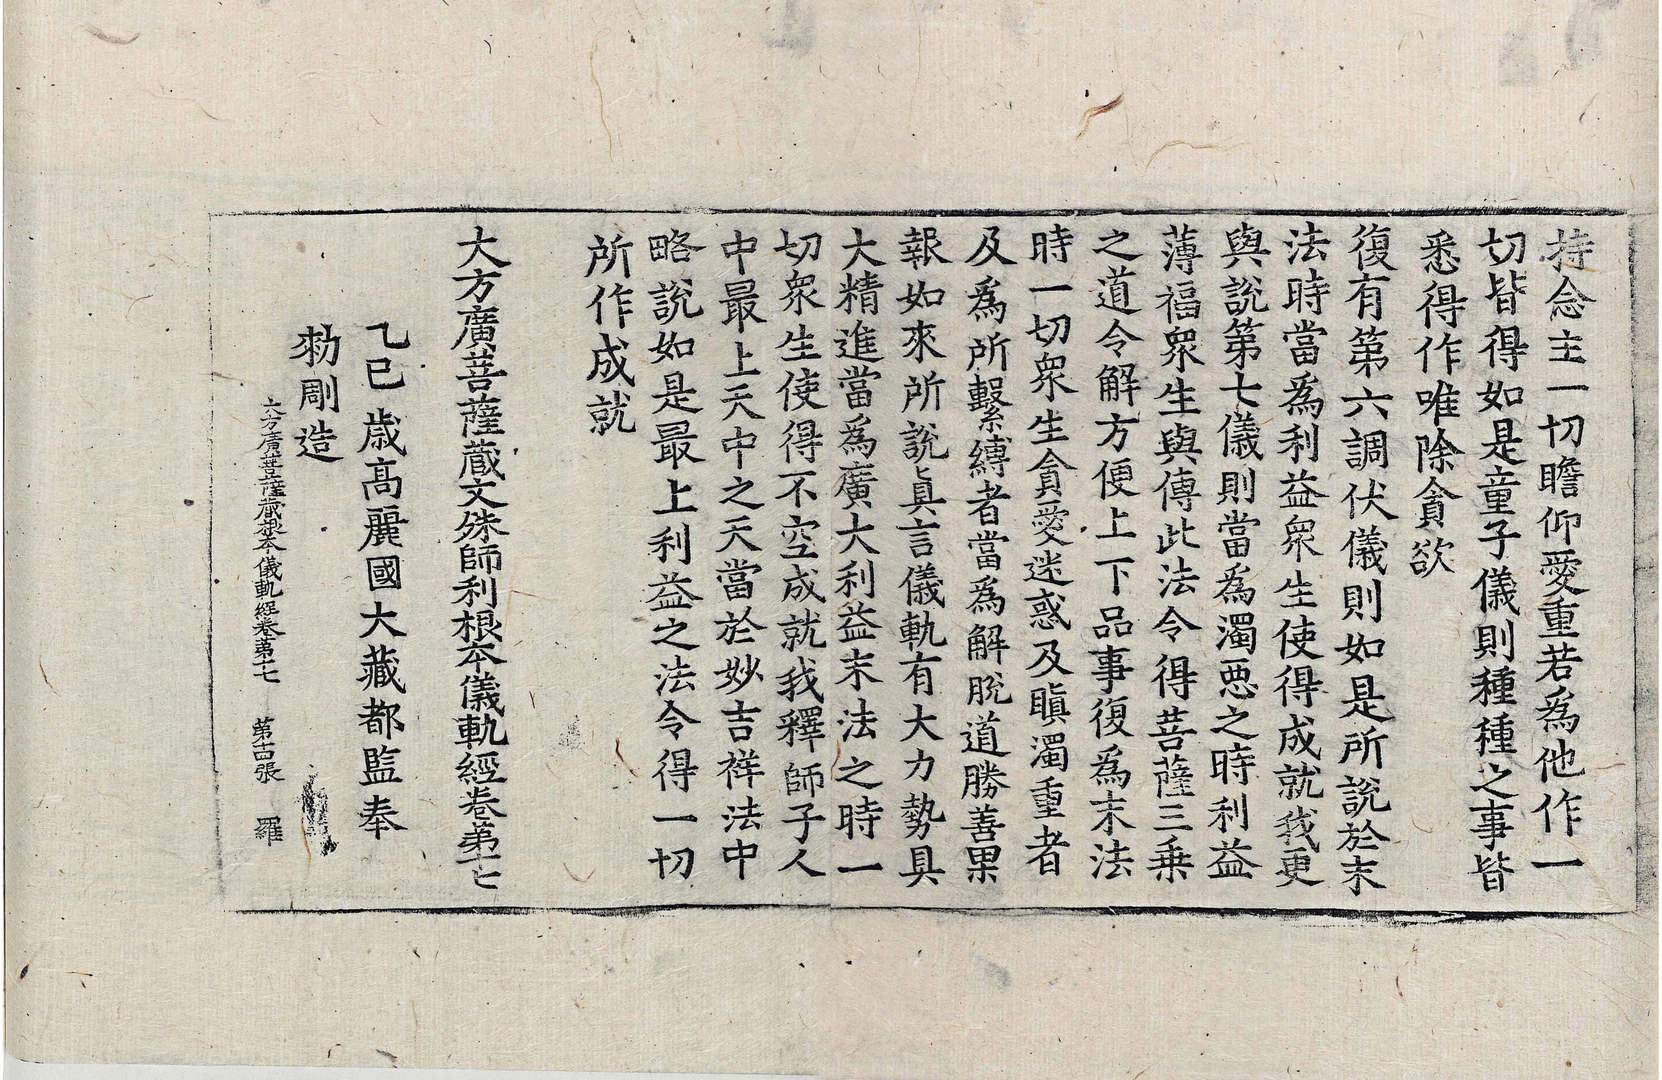 持念主一切瞻仰愛重若為他作一
切皆得如是童子儀則種種之事皆
悉得作唯除貪欲
復有第六調伏儀則如是所說於末
法時當為利益衆生使得成就我更
與說第七儀則當為濁惡之時利益
薄福衆生與傳此法令得菩薩三乘
之道令解方便上下品事復為末法
時一切衆生貪愛迷惑及瞋濁重者
及為所繫縛者當為解脫道勝善果
報如來所說眞言儀軌有大力勢具
大精進當為廣大利益末法之時一
切衆生使得不空成就我釋師子人
中最上天中之天當於妙吉祥法中
略說如是最上利益之法令得一切
所作成就
大方廣菩薩藏文殊師利根本儀軌經卷第七
乙巳歲高麗國大藏都監奉
勑彫造
大方廣菩薩藏根本儀軌經卷第七 第十四張 羅